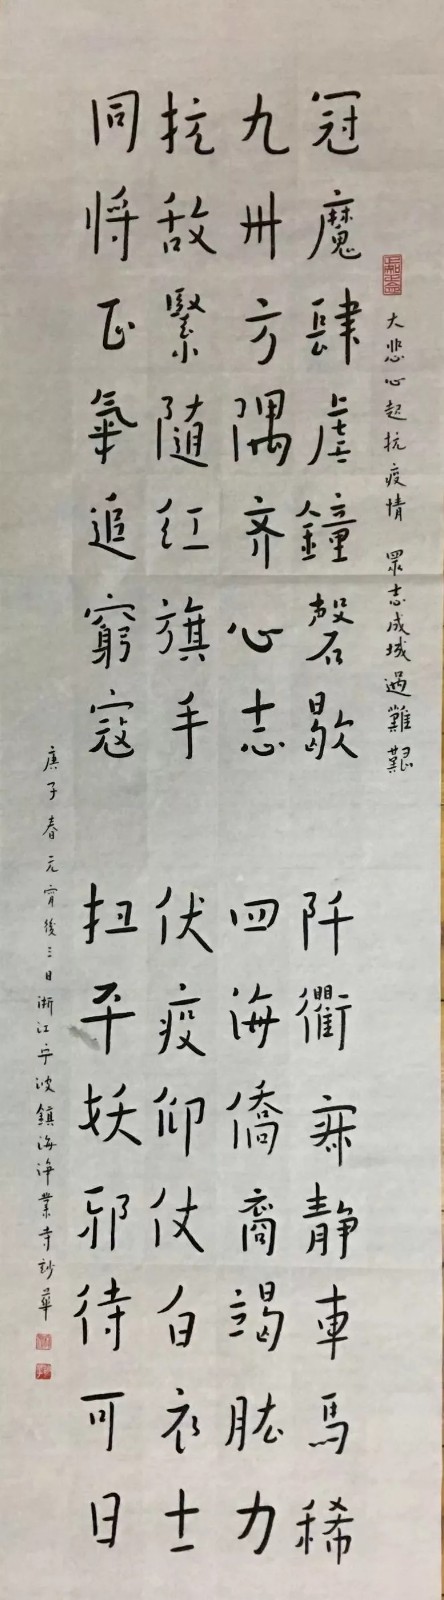 大悲心起抗疫情 眾志成城過難艱
冠魔肆虐鐘磬歇 阡衢寂静車馬稀
九州方隅齐心志 四海僑裔竭肱力
抗敌緊随红旗手 伏疫仰仗白衣士
同将正氣追窮寇 扭平妖邪待可日
庚子春元宵後三日浙江宁波鎮海净業寺妙華